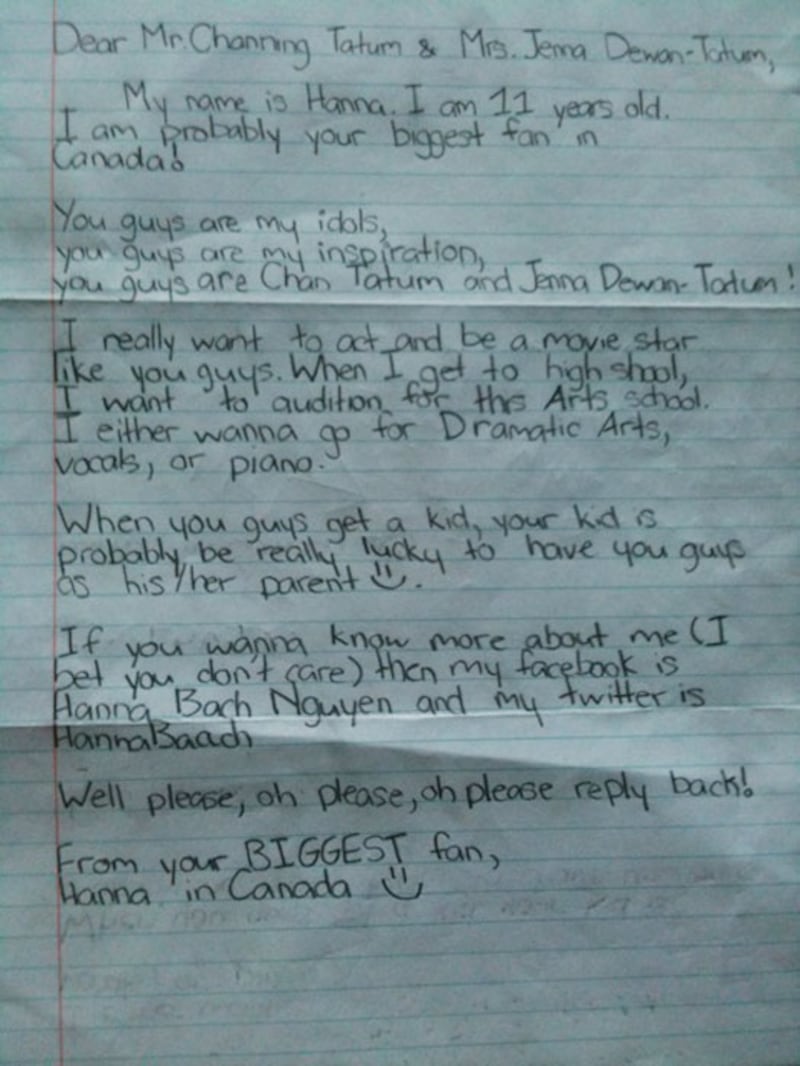 Dear Mr. Channing Tatum & Mrs. Jenna Dewan-Tatum,
My name is Hanna. I am 11 years old.
I am probably your biggest fan in
Canada!
You guys are my idols,
you guys are my inspiration,
you guys are Chan Tatum and Jenna Dewan-Tatum!
I really want to act and be a movie star
like you guys. When I get to high shool,
I want to audition for this Arts school.
I either wanna go for Dramatic Arts,
vocals, or piano.
When you guys get a kid, your kid is
probably be really lucky to have you guys
as his/her parent :).
If you wanna know more about me (I
bet you don't care) then my facebook is
Hanna Bach Nguyen and my twitter is
HannaBaach
Well please, oh please, oh please reply back!
From your BIGGEST fan,
Hanna in Canada :)